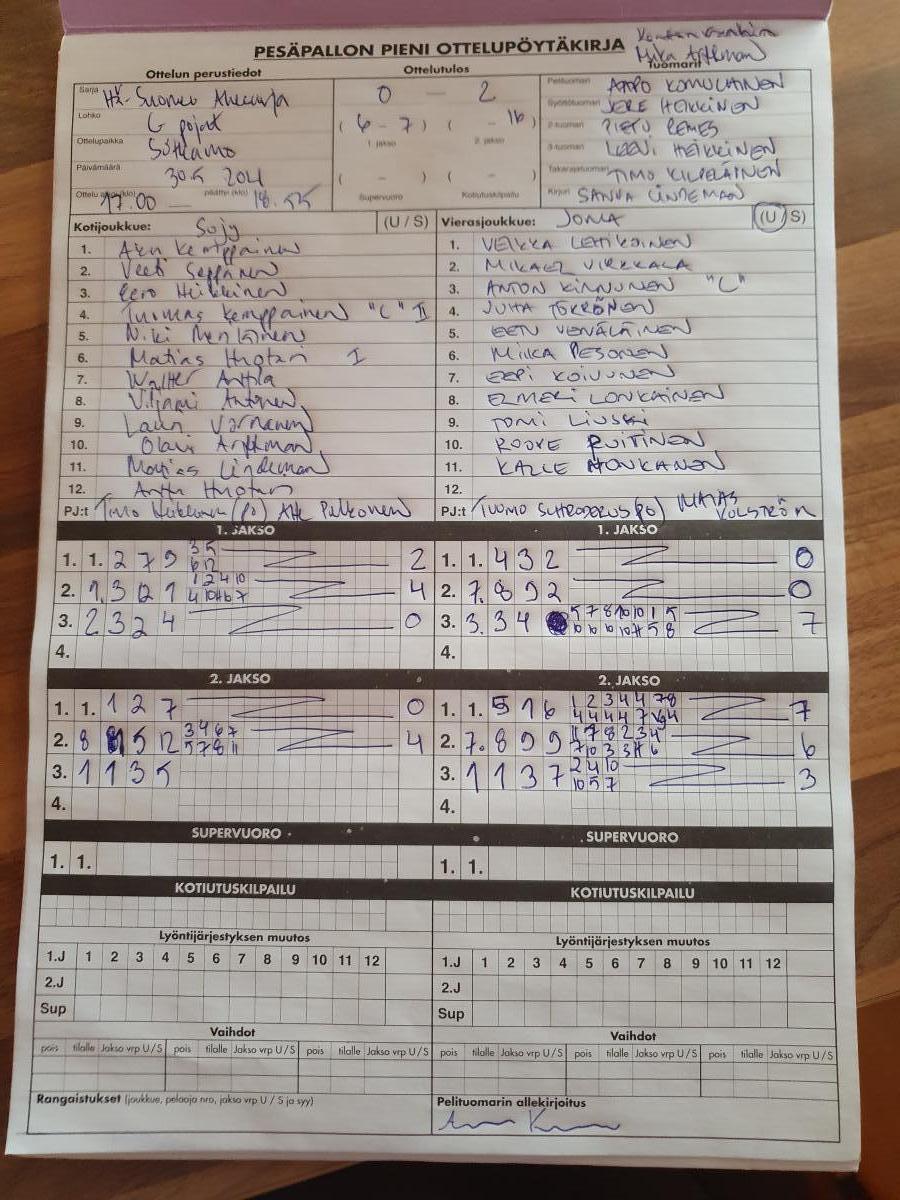 PESÄPALLON PIENI OTTELUPÖYTÄKIRJA
Mika Arffman
Ottelun perustiedot
Ottelutulos
Tuomarit
Sarja
Itä-Suomen Aluesarja
0 — 2
Pelituomari AAPO KOMULAINEN
Lohko
G pojat
( 6 - 7 ) ( - 16 )
Syöttötuomari JERE HEIKKINEN
1. jakso 2. jakso
2-tuomari PIETU REMES
Ottelupaikka
Sotkamo
3-tuomari LEEVI HEIKKINEN
Päivämäärä
30.5
( - ) ( - )
Takarajatuomari TIMO KILPELÄINEN
Ottelu alkoi (klo) 17.00 — päättyi (klo) 18.55
Supervuoro Kotiutuskilpailu
Kirjuri SANNA LINDEMAN
Kotijoukkue: SoJy (U / S)
Vierasjoukkue: JOMA (U / S)
1. Aku Kemppainen
2. Veeti Seppänen
3. Eero Heikkinen
4. Tuomas Kemppainen "C" II
5. Niki
6. Matias Huotari I
7. Walter Anttila
8. Viljami Antonen
9. Lauri Väänänen
10. Olavi Arffman
11. Matias Lindeman
12. Anttu Huotari
PJ:t Timo Heikkinen (po) Atte Pulkkonen
1. VEIKKA LEHIKOINEN
2. MIKAEL VIRKKALA
3. ANTON KINNUNEN "C"
4. JUHA TORRÖNEN
5. EEN VENÄLÄINEN
6. MIIKA PESONEN
7. EEPI KOIVUNEN
8. ELMERI LONKAINEN
9. TOMI LIUSKI
10. ROOPE RUITINEN
11. KALLE HONKANEN
12.
PJ:t TUOMO SUHRODERUS (po) MATIAS KOLSTRÖM
1. JAKSO
1. 1. 2 7 9 3 5 2
6 12
2. 1. 3 0 1 1 2 4 10 4
4 10 11 6 7
3. 2 3 2 4 0
4.
1. JAKSO
1. 1. 4 3 2 0
2. 7. 8 9 2 0
3. 3. 3 4 5 7 8 10 10 1 5 7
10 10 10 10 11 5 8
4.
2. JAKSO
1. 1. 1 2 7 0
2. 8 5 12 3 4 6 7 4
5 7 8 11
3. 1 1 3 5
4.
2. JAKSO
1. 1. 5 1 6 1 2 3 4 4 7 8 7
4 4 4 4 7
2. 7. 8 9 9 1 7 8 2 3 4 6
7 10 3 3 11 6
3. 1 1 3 7 2 4 10 3
10 5 7
4.
SUPERVUORO
1. 1.
SUPERVUORO
1. 1.
KOTIUTUSKILPAILU
KOTIUTUSKILPAILU
Lyöntijärjestyksen muutos
1.J 1 2 3 4 5 6 7 8 9 10 11 12
2.J
Sup
Lyöntijärjestyksen muutos
1.J 1 2 3 4 5 6 7 8 9 10 11 12
2.J
Sup
Vaihdot
pois tilalle Jakso vrp U / S pois tilalle Jakso vrp U / S pois tilalle Jakso vrp U / S
Vaihdot
pois tilalle Jakso vrp U / S pois tilalle Jakso vrp U / S pois tilalle Jakso vrp U / S
Rangaistukset (joukkue, pelaaja nro, jakso vrp U / S ja syy)
Pelituomarin allekirjoitus